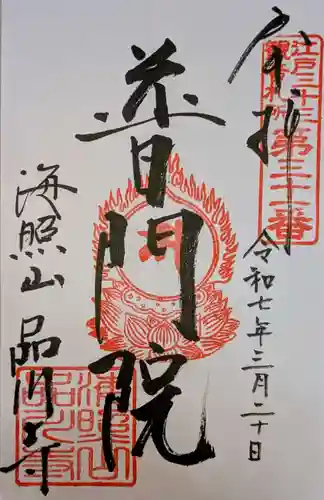 奉拝
江戸三十三
観音札所
第三十一番
令和七年三月二十日
普門院
海照山
品川寺
海照山
品川寺